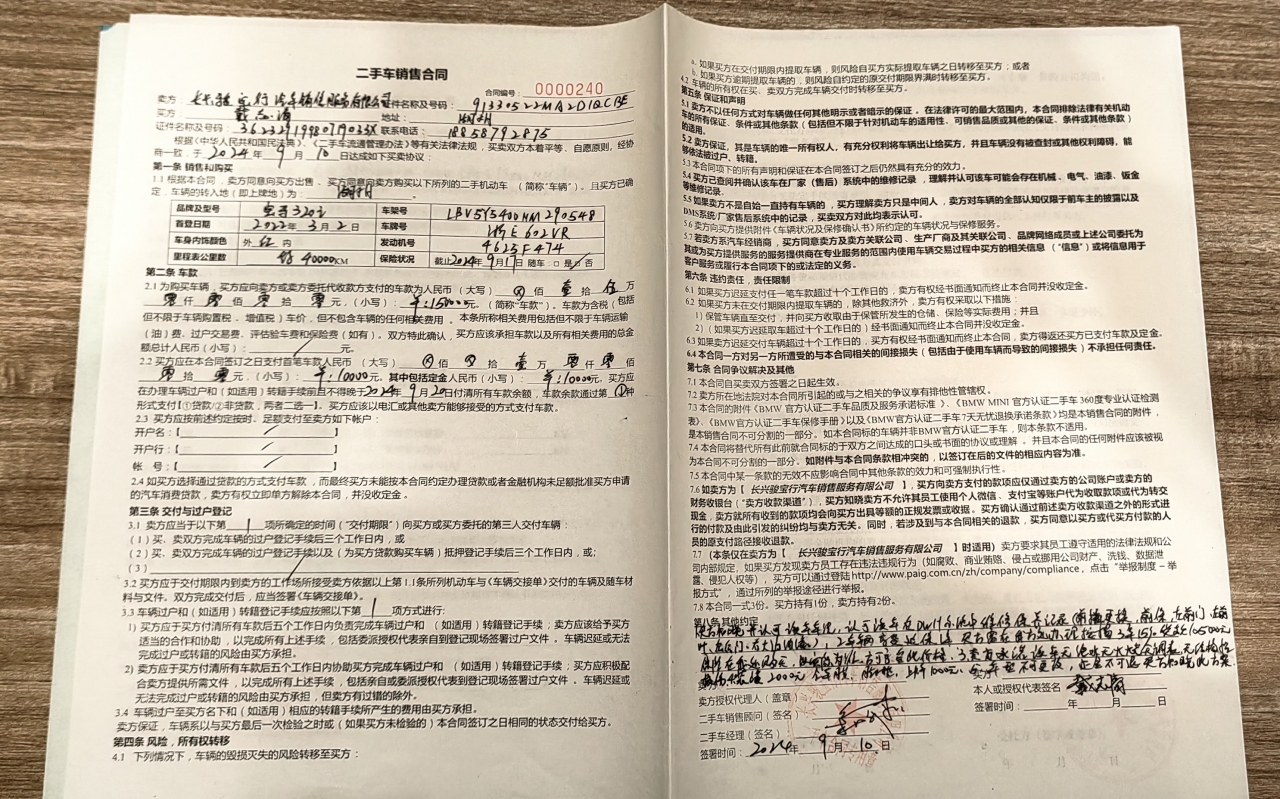 二手车销售合同
合同编号：0000240
卖方：长兴骏宝行汽车销售服务有限公司 证件名称及号码：91330522MA2D1QCB
买方： 地址：湖州
证件名称及号码：36232919980719033X 联系电话：18858792875
根据《中华人民共和国民法典》、《二手车流通管理办法》等有关法律规，买卖双方本着平等、自愿原则，经协
商一致，于2024年9月10日达成如下买卖协议：
第一条 销售和购买
1.1 根据本合同，卖方同意向买方出售、买方同意向卖方购买以下所列的二手机动车（简称“车辆”）。且买方已确
定，车辆的转入地（即上牌地）为：湖州。
品牌及型号 宝马320i 车架号 LBV5Y5400HM290548
首登日期 2022年3月2日 车牌号 浙E602VR
车身内饰颜色 外 红 内 发动机号 4623F474
里程表公里数 40000KM 保险状况 截止2024年9月17日 随车：□是/否
第二条 车款
2.1 为购买车辆，买方应向卖方或卖方委托代收款方支付的车款为人民币（大写）⊗佰 壹拾 伍万
零仟 零佰 零拾 零元，（小写）：￥:150000元。（简称“车款”）。车款为含税（包括
但不限于车辆购置税、增值税）车价，但不包含车辆的任何相关费用。本条所称相关费用包括但不限于车辆运输
（油）费、过户交易费、评估验车费和保险费（如有）。双方特此确认，买方应该承担车款以及所有相关费用的总金
额总计人民币（小写）：元。
2.2 买方应在本合同签订之日支付首笔车款人民币（大写）⊗佰 ⊗拾 壹万 零仟 零佰
零拾 零元，（小写）：￥:10000元。其中包括定金人民币（小写）：￥:10000元。买方应
在办理车辆过户和（如适用）转籍手续前且不得晚于2024年9月20日付清所有车款余额，车款余款通过第②种
形式支付【①贷款/②非贷款，两者二选一】。买方应该以电汇或其他卖方能够接受的方式支付车款。
2.3 买方应按前述约定按时、足额支付至卖方如下帐户：
开户名：【 】
开户行：【 】
帐 号：【 】
2.4 如买方选择通过贷款的方式支付车款，而最终买方未能按本合同约定办理贷款或者金融机构未足额批准买方申请
的汽车消费贷款，卖方有权立即单方解除本合同，并没收定金。
第三条 交付与过户登记
3.1 卖方应当于以下第1项所确定的时间（“交付期限”）向买方或买方委托的第三人交付车辆：
（1）买、卖双方完成车辆的过户登记手续后三个工作日内，或
（2）买、卖双方完成车辆的过户登记手续以及（为买方贷款购买车辆）抵押登记手续后三个工作日内，或；
（3）
3.2 买方应于交付期限内到卖方的工作场所接受卖方依据以上第1.1条所列机动车与《车辆交接单》交付的车辆及随车材
料与文件。双方完成交付后，应当签署《车辆交接单》。
3.3 车辆过户和（如适用）转籍登记手续应按照以下第1项方式进行:
1） 买方应于卖方付清所有车款后五个工作日内负责完成车辆过户和（如适用）转籍登记手续；卖方应该给予买方
适当的合作和协助，以完成所有上述手续，包括委派授权代表亲自到登记现场签署过户文件。车辆迟延或无法
完成过户或转籍的风险由买方承担。
2） 卖方应于买方付清所有车款后五个工作日内协助买方完成车辆过户和（如适用）转籍登记手续；买方应积极配
合卖方提供所需文件，以完成所有上述手续，包括亲自或委派授权代表到登记现场签署过户文件。车辆迟延或
无法完成过户或转籍的风险由买方承担，但卖方有过错的除外。
3.4 车辆过户至买方名下和（如适用）相应的转籍手续所产生的费用由买方承担。
卖方保证，车辆系以与买方最后一次检验之时或（如果买方未检验的）本合同签订之日相同的状态交付给买方。
第四条 风险，所有权转移
4.1 下列情况下，车辆的毁损灭失的风险转移至买方：
a. 如果买方在交付期限内提取车辆，则风险自买方实际提取车辆之日转移至买方；或者
b. 如果买方逾期提取车辆的，则风险自约定的原交付期限界满时转移至买方。
4.2 车辆的所有权在买、卖双方完成车辆交付时转移至买方。
第五条 保证和声明
5.1 卖方不以任何方式对车辆做任何其他明示或者暗示的保证。在法律许可的最大范围内，本合同排除法律有关机动
车的所有保证、条件或其他条款（包括但不限于针对机动车的适用性、可销售品质或其他的保证、条件或其他条款）
的适用。
5.2 卖方保证，其是车辆的唯一所有权人，有充分权利将车辆出让给买方，并且车辆没有被查封或其他权利障碍，能
够依法被过户、转籍。
5.3 本合同项下的所有声明和保证在本合同签订之后仍然具有充分的效力。
5.4 买方已查阅并确认该车在厂家（售后）系统中的维修记录，理解并认可该车可能会存在机械、电气、油漆、钣金
等维修记录。
5.5 如果卖方不是自始一直持有车辆的，买方理解卖方只是中间人，卖方对车辆的全部认知仅限于前车主的披露以及
DMS系统/厂家售后系统中的记录，买卖双方对此均表示认可。
5.6 卖方向买方提供附件《车辆状况及保修确认书》所约定的车辆状况与保修服务。
5.7 若卖方系汽车经销商，买方同意卖方及卖方关联公司、生产商及其关联公司、品牌网络成员或上述公司委托为
其或为买方提供服务的服务提供商在专业服务的范围内使用车辆交易过程中买方的相关信息（“信息”）或将信息用于
客户服务或履行本合同项下的或法定的义务。
第六条 违约责任，责任限制
6.1 如果买方迟延支付任一笔车款超过十个工作日的，卖方有权经书面通知而终止本合同并没收定金。
6.2 如果买方未在交付期限内提取车辆的，除其他救济外，卖方有权采取以下措施：
1）保管车辆直至交付，并向买方收取由于保管所发生的仓储、保险等实际费用；并且
2）（如果买方迟延取车超过十个工作日的）经书面通知而终止本合同并没收定金。
6.3 如果卖方迟延交付车辆超过十个工作日的，买方有权经书面通知而终止本合同，卖方得返还买方已支付车款及定金。
6.4 本合同一方对另一方所遭受的与本合同相关的间接损失（包括由于使用车辆而导致的间接损失）不承担任何责任。
第七条 合同争议解决及其他
7.1 本合同自买卖双方签署之日起生效。
7.2 卖方所在地法院对本合同所引起的或与之相关的争议享有排他性管辖权。
7.3 本合同的附件《BMW 官方认证二手车品质及服务承诺标准》、《BMW MINI 官方认证二手车 360度专业认证检测
表》、《BMW官方认证二手车保修手册》以及《BMW官方认证二手车7天无忧退换承诺条款》均是本销售合同的附件，
是本销售合同不可分割的一部分。如本合同标的车辆并非BMW官方认证二手车，则本条款不适用。
7.4 本合同将替代所有此前就合同标的于双方之间达成的口头或书面的协议或理解。并且本合同的任何附件应该被视
为本合同不可分割的一部分。如附件与本合同条款相冲突的，以签订在后的文件的相应内容为准。
7.5 本合同中某一条款的无效不应影响合同中其他条款的效力和可强制执行性。
7.6 如卖方为【 长兴骏宝行汽车销售服务有限公司 】，买方向卖方支付的款项应仅通过卖方的公司账户或卖方的
财务收银台（“卖方收款渠道”），买方知晓卖方不允许其员工使用个人微信、支付宝等账户代为收取款项或代为转交
现金，卖方就所有收到的款项均会向买方出具等额的正规发票或收据。买方确认通过前述卖方收款渠道之外的形式进
行的付款及由此引发的纠纷均与卖方无关。同时，若涉及到与本合同相关的退款，买方同意以买方或代买方付款的人
员的原支付路径接收退款。
7.7（本条仅在卖方为【 长兴骏宝行汽车销售服务有限公司 】时适用）卖方要求其员工遵守适用的法律法规和公
司内部规定，如果买方发现卖方员工存在违法违规行为（如腐败、商业贿赂、侵占或挪用公司财产、洗钱、数据泄
露、侵犯人权等），买方可以通过登陆 http://www.paig.com.cn/zh/company/compliance，点击“举报制度－举
报方式”，通过所列的举报途径进行举报。
7.8 本合同一式3份。买方持有1份，卖方持有2份。
第八条 其他约定
卖方授权代理人（盖章）
二手车销售顾问（签名）
二手车经理（签名）
签署时间：2024年9月10日
本人或授权代表签名
签署时间： 年 月 日